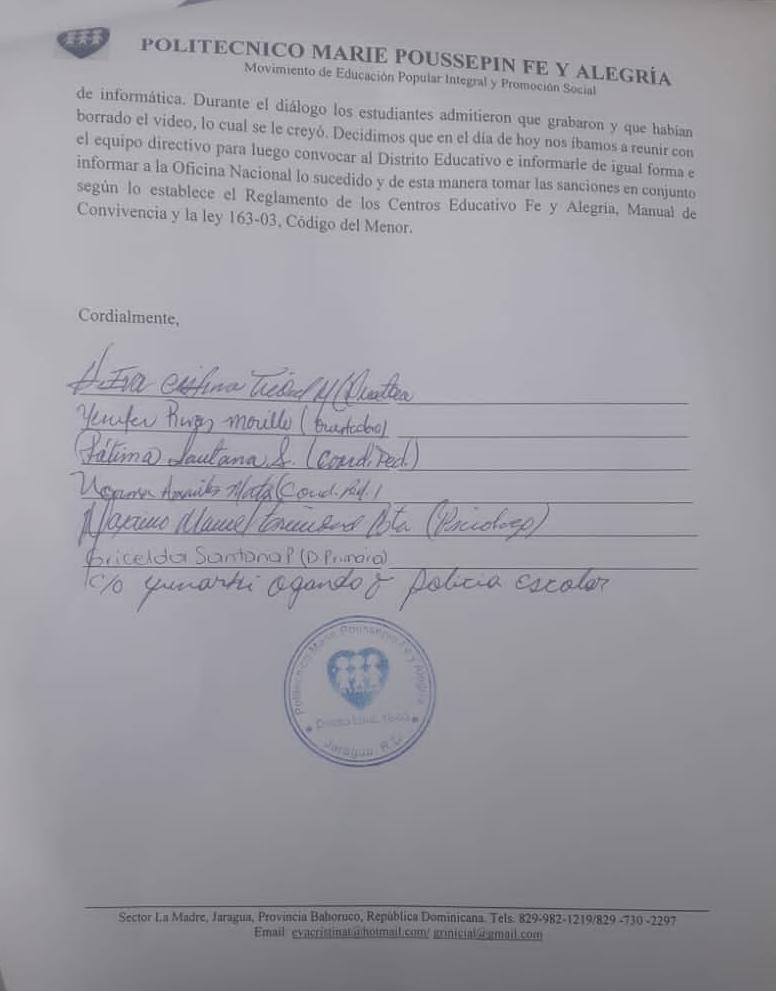 POLITECNICO MARIE POUSSEPIN FE Y ALEGRÍA
Movimiento de Educación Popular Integral y Promoción Social
de informática. Durante el diálogo los estudiantes admitieron que grabaron y que habían
borrado el video, lo cual se le creyó. Decidimos que en el día de hoy nos íbamos a reunir con
el equipo directivo para luego convocar al Distrito Educativo e informarle de igual forma e
informar a la Oficina Nacional lo sucedido y de esta manera tomar las sanciones en conjunto
según lo establece el Reglamento de los Centros Educativo Fe y Alegría, Manual de
Convivencia y la ley 163-03, Código del Menor.
Cordialmente,
Eva
Morillo
Fátima Santana S. (Coord. Ped.)
Mata (Coord. Ped.)
Maximo Manuel (Psicólogo)
Gricelda Santana P (D. Primaria)
c/o Ogando policia escolar
Politecnico Marie Poussepin Fe y Alegria
Jaragua, R.D.
Sector La Madre, Jaragua, Provincia Bahoruco, República Dominicana. Tels. 829-982-1219/829 -730 -2297
Email: evacristinat@hotmail.com/ grinicial@gmail.com